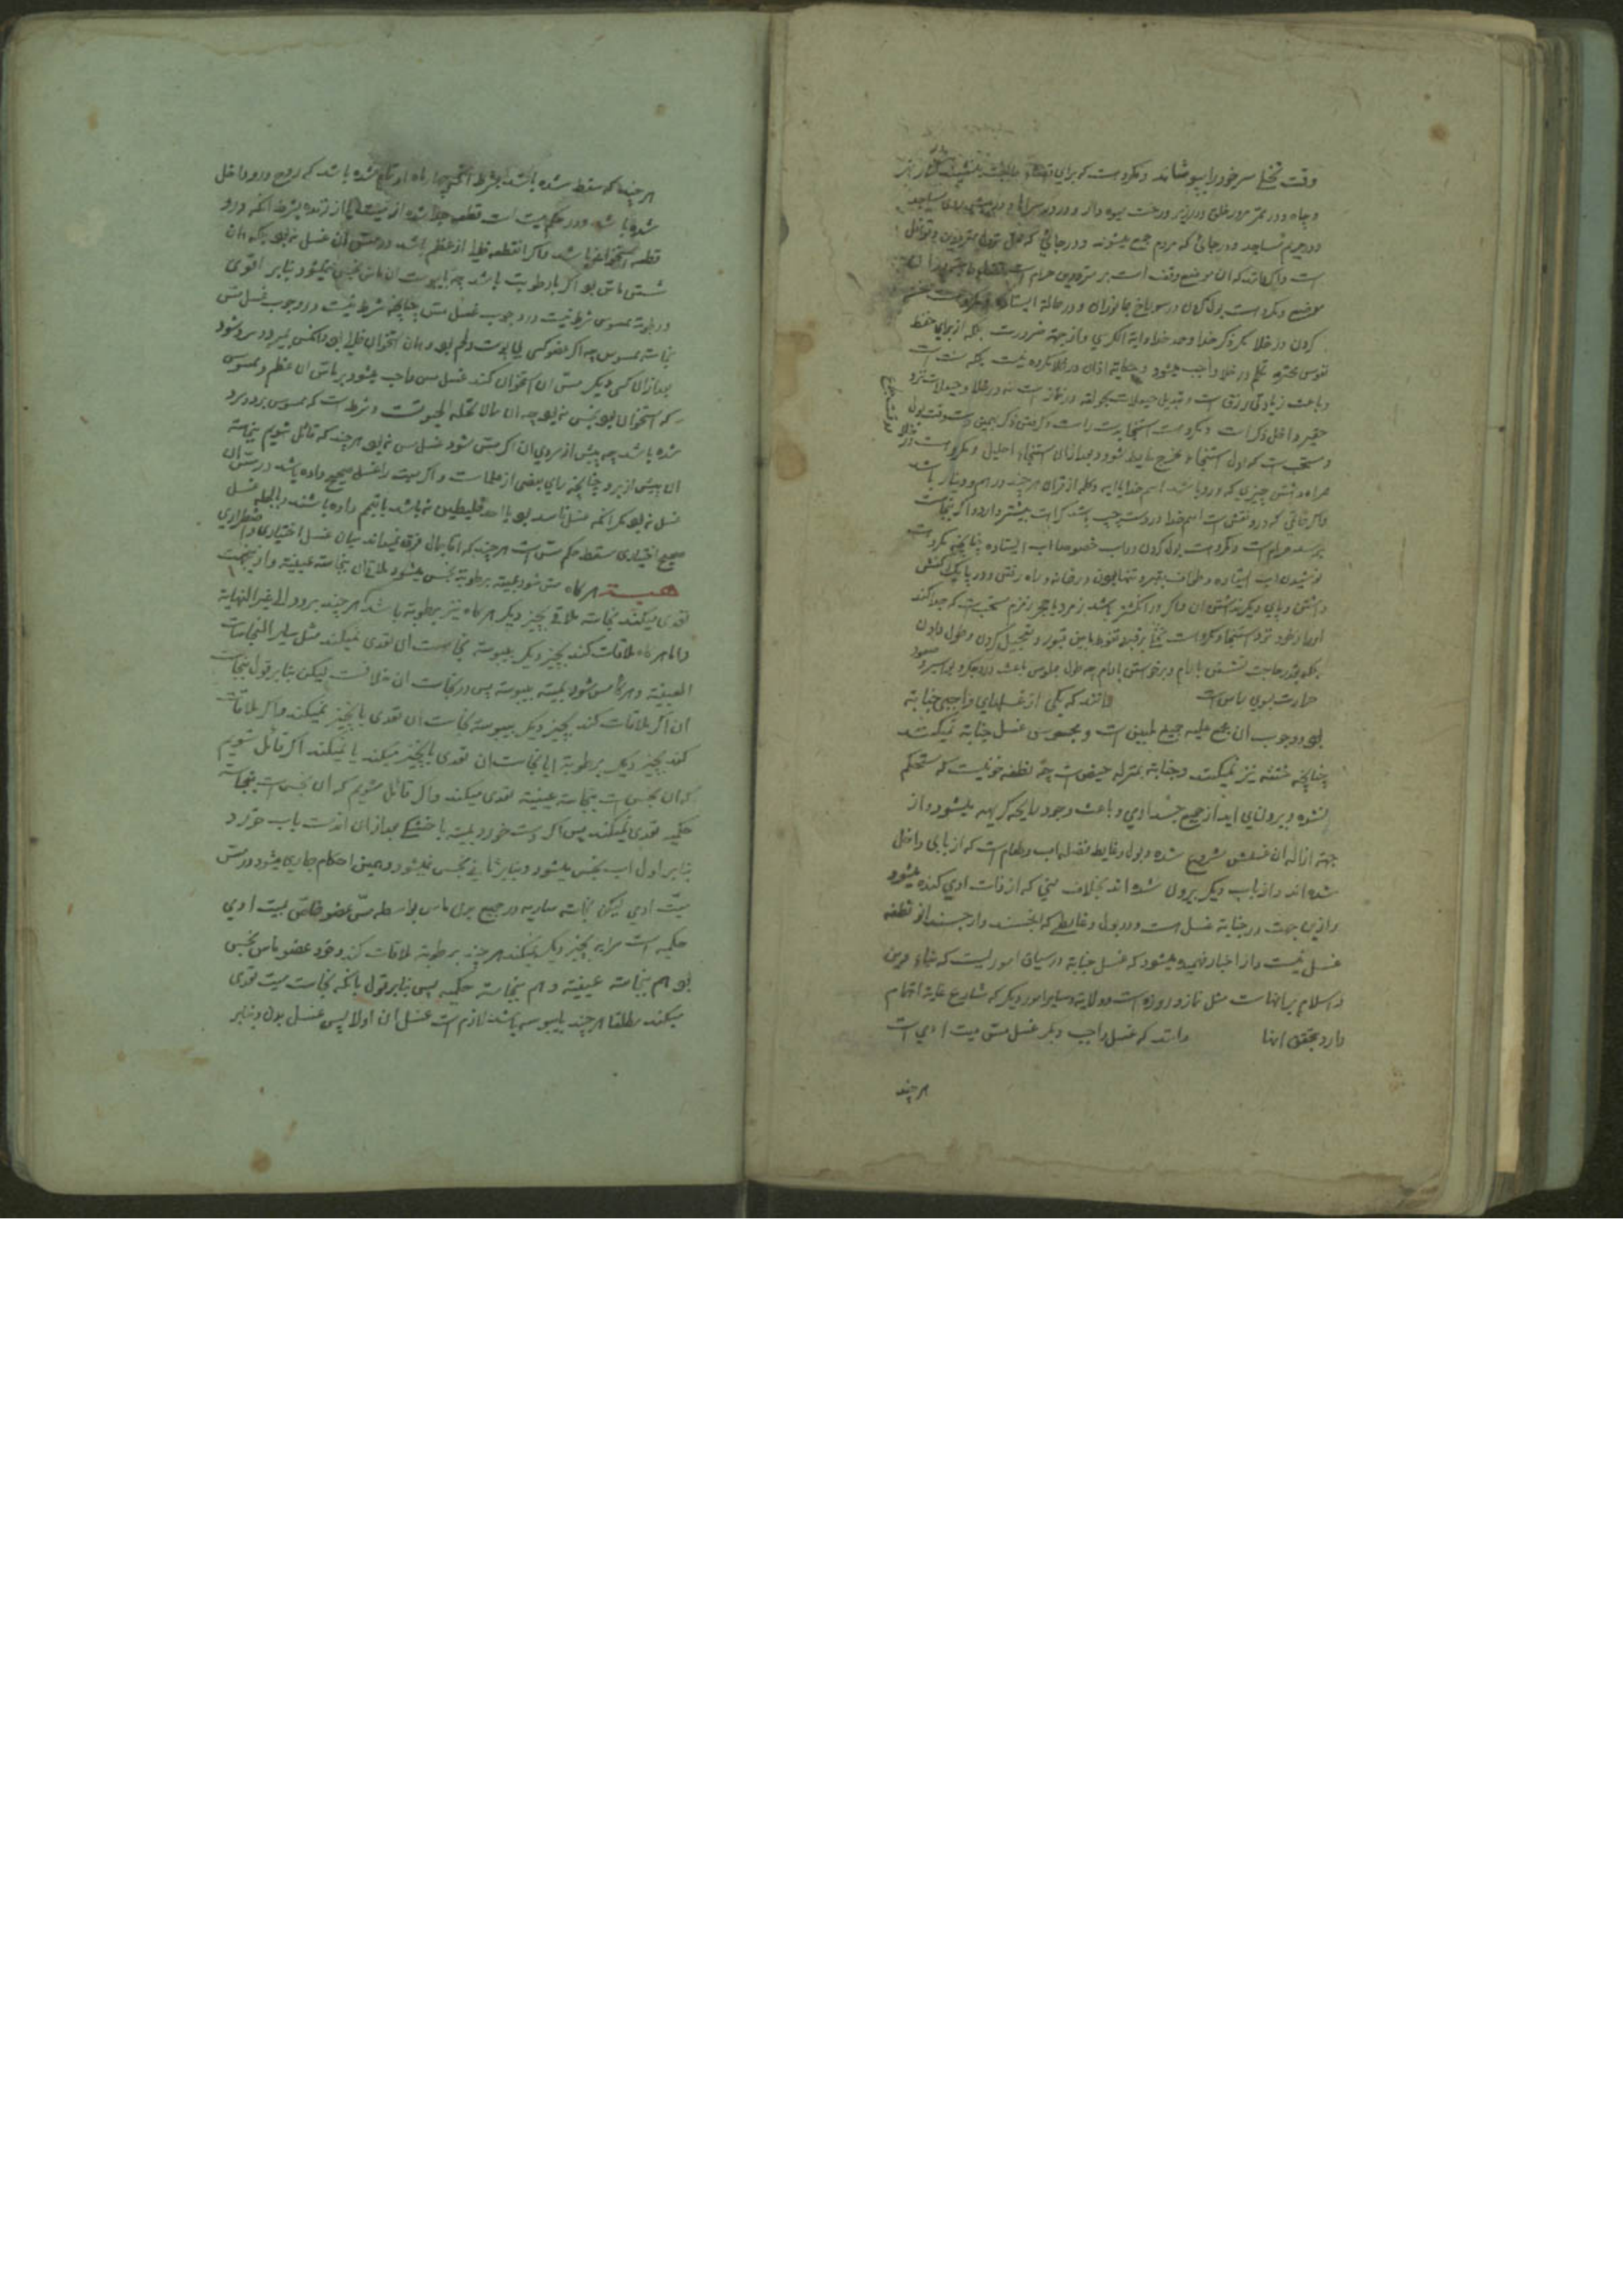 وقت تخلی سر خود را بپوشاند و مکروه است که برای
و چاه و در ممر مرور خلق و در زیر درخت میوه دار و در در سراها و در
و در حریم مساجد و در جائی که مردم جمع میشوند و در جائی که محل نزول مترددین و قوافل
است و اگر بداند که ان موضع وقف است بر مترددین حرام است
موضع و مکروه است بول کردن در سوراخ جانوران و در حالة ایستاده و مکروه است
کردن در خلا مگر ذکر خدا و حمد خدا و ایة الکرسی و از جهة ضرورت بلکه از برای حفظ
نفوس محترمه تکلم در خلا واجب میشود و حکایة اذان در خلا مکروه نیست بلکه سنت است
و باعث زیادتی رزق است و تبدیل حیعلات بحولقه در نماز است نه در خلا و حیعلات نزد
حقیر داخل ذکر است و مکروه است استنجا بدست راست و گرفتن ذکر بیمین در وقت بول
و مستحب است که اول استنجاء مخرج غایط شود و بعد از ان استنجاء احلیل و مکروه است
همراه داشتن چیزی که در او باشد اسم خدا یا ایه و کلمه از قران هر چند در هم و دینار باشد
و اگر خاتمی که در او نقش است اسم خدا در دست چپ باشد کراهت بیشتر دارد و اگر نجاست
برسد حرام است و مکروه است بول کردن در اب خصوصا اب ایستاده چنانچه مکروه است
نوشیدن اب ایستاده و طواف بقبر و تنها بودن در خانه و راه رفتن در یک کفش
داشتن و پای دیگر نداشتن ان و اگر در انگشتر باشد زمرد یا حجر زمزم مستحب است که جدا کند
او را از خود نزد استنجا و مکروه است تخلی بر قبر و تغوط مابین قبور و تعجیل کردن و طول دادن
بلکه بقدر حاجت نشستن با امام و برخواستن با امام چه طول جلوس باعث درد جگر و بواسیر و صعود
حرارت بسوی راس است بدانند که یکی از غسلهای واجبی جنابة
بود و وجوب ان مجمع علیه جمیع ملیین است و مجوس غسل جنابة نمیکنند
چنانچه ختنه نیز نمیکنند و جنابة بمنزله حیض است چه نطفه خونیست که مستحکم
نشده و بیرون می اید از جمیع جسد ادمی و باعث وجود رایحه کریهه میشود و از
جهة ازاله ان غسلش مشروع شده و بول و غایط فضله اب و طعام است که از بابی داخل
شده اند و از باب دیگر بیرون شده اند بخلاف منی که از ذات ادمی کنده میشود
و از این جهت در جنابة غسل هست و در بول و غایط
غسل نیست و از اخبار فهمیده میشود که غسل جنابة در میان اموریست که بناء دین
و اسلام بر انهاست مثل نماز و روزه است و ولایة و سایر امور دیگر که شارع غایة اهتمام
دارد بتحقق انها بدانند که غسل واجب دیگر غسل مس میت ادمی است
هر چند
هر چند که سقط شده باشد بشرط انکه چهار ماه او تمام شده باشد که روح در او داخل
شده باشد و در حکم میت است قطعه جدا شده از میت یا از زنده بشرط انکه در او
قطعه استخوانی باشد و اگر انقطعه خالی از عظم باشد در مس ان غسل نبود بلکه همان
شستن ماس بود اگر با رطوبت باشد چه با یبوست ان ماس نجس نمیشود بنابر اقوی
و رطوبة ممسوس شرط نیست در وجوب غسل مس چنانچه شرط نیست در وجوب غسل مس
نجاسة ممسوس چه اگر عضو کسی بی پوست و لحم بود و همان استخوان خالی بود و انکس بمیرد و سرد شود
بعد از ان کسی دیگر مس ان استخوان کند غسل مس واجب میشود بر ماس ان عظم و ممسوس
که استخوان بود نجس نبود چه ان مما لا تحله الحیوة است و شرط است که ممسوس برودت
شده باشد چه پیش از سردی ان اگر مس شود غسل مس نبود هر چند که قائل شویم بنجاسة
ان پیش از برد چنانچه رای بعضی از علماست و اگر میت را غسل صحیح داده باشد در مس ان
غسل نبود مگر انکه غسل فاسد بود یا احد خلیطین نباشد یا تیمم داده باشند و بالجمله غسل
صحیح اختیاری مسقط حکم مس است هر چند که اتا بحال فرق میان غسل اختیاری و اضطراری
میت هر گاه مس شود میتة برطوبة نجس میشود ملاقی ان بنجاسة عینیة و از اینجهت
تعدی میکند نجاسة ملاقی بچیز دیگر هر گاه نیز برطوبة باشد هر چند برود الی غیر النهایة
و اما هر گاه ملاقات کند بچیز دیگر بیبوسة نجاست ان تعدی نمیکند مثل سایر النجاسات
العینیة و هر گاه مس شود بمیتة بیبوسة پس در نجاست ان خلافست لیکن بنابر قول بنجاست
ان اگر ملاقات کند بچیز دیگر بیبوسة نجاست ان تعدی بانچیز نمیکند و اگر ملاقات
کند بچیز دیگر برطوبة ایا نجاست ان تعدی بانچیز میکند یا نمیکند اگر قائل شویم
که ان نجس است بنجاسة عینیة تعدی میکند و اگر قائل شویم که ان نجس است بنجاسة
حکمیه تعدی نمیکند پس اگر دست خورد بمیتة با خشکی بعد از ان اندست باب خورد
بنابر اول اب نجس میشود و بنابر ثانی نجس نمیشود و همین احکام جاری میشود در مس
میت ادمی لیکن نجاسة ساریه در جمیع بدن ماس بواسطه مس عضو خاص بمیت ادمی
حکمیه است سرایه بچیز دیگر نمیکند هر چند برطوبة ملاقات کند و خود عضو ماس نجس
بود هم بنجاسة عینیة و هم بنجاسة حکمیه پس بنابر قول بانکه نجاست میت تعدی
میکند مطلقا هر چند بیبوسة باشد لازم است غسل ان اولا پس غسل بدن و بنابر